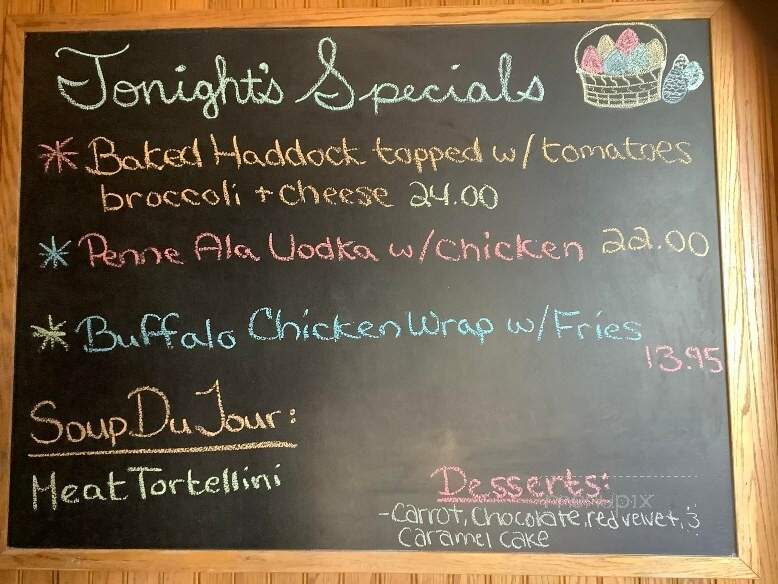 Tonight's Specials
* Baked Haddock topped w/ tomatoes
broccoli + cheese 24.00
* Penne Ala Vodka w/chicken 22.00
* Buffalo Chicken Wrap w/Fries
13.95
Soup Du Jour:
Meat Tortellini
Desserts:
-Carrot, Chocolate, red velvet, &
Caramel Cake